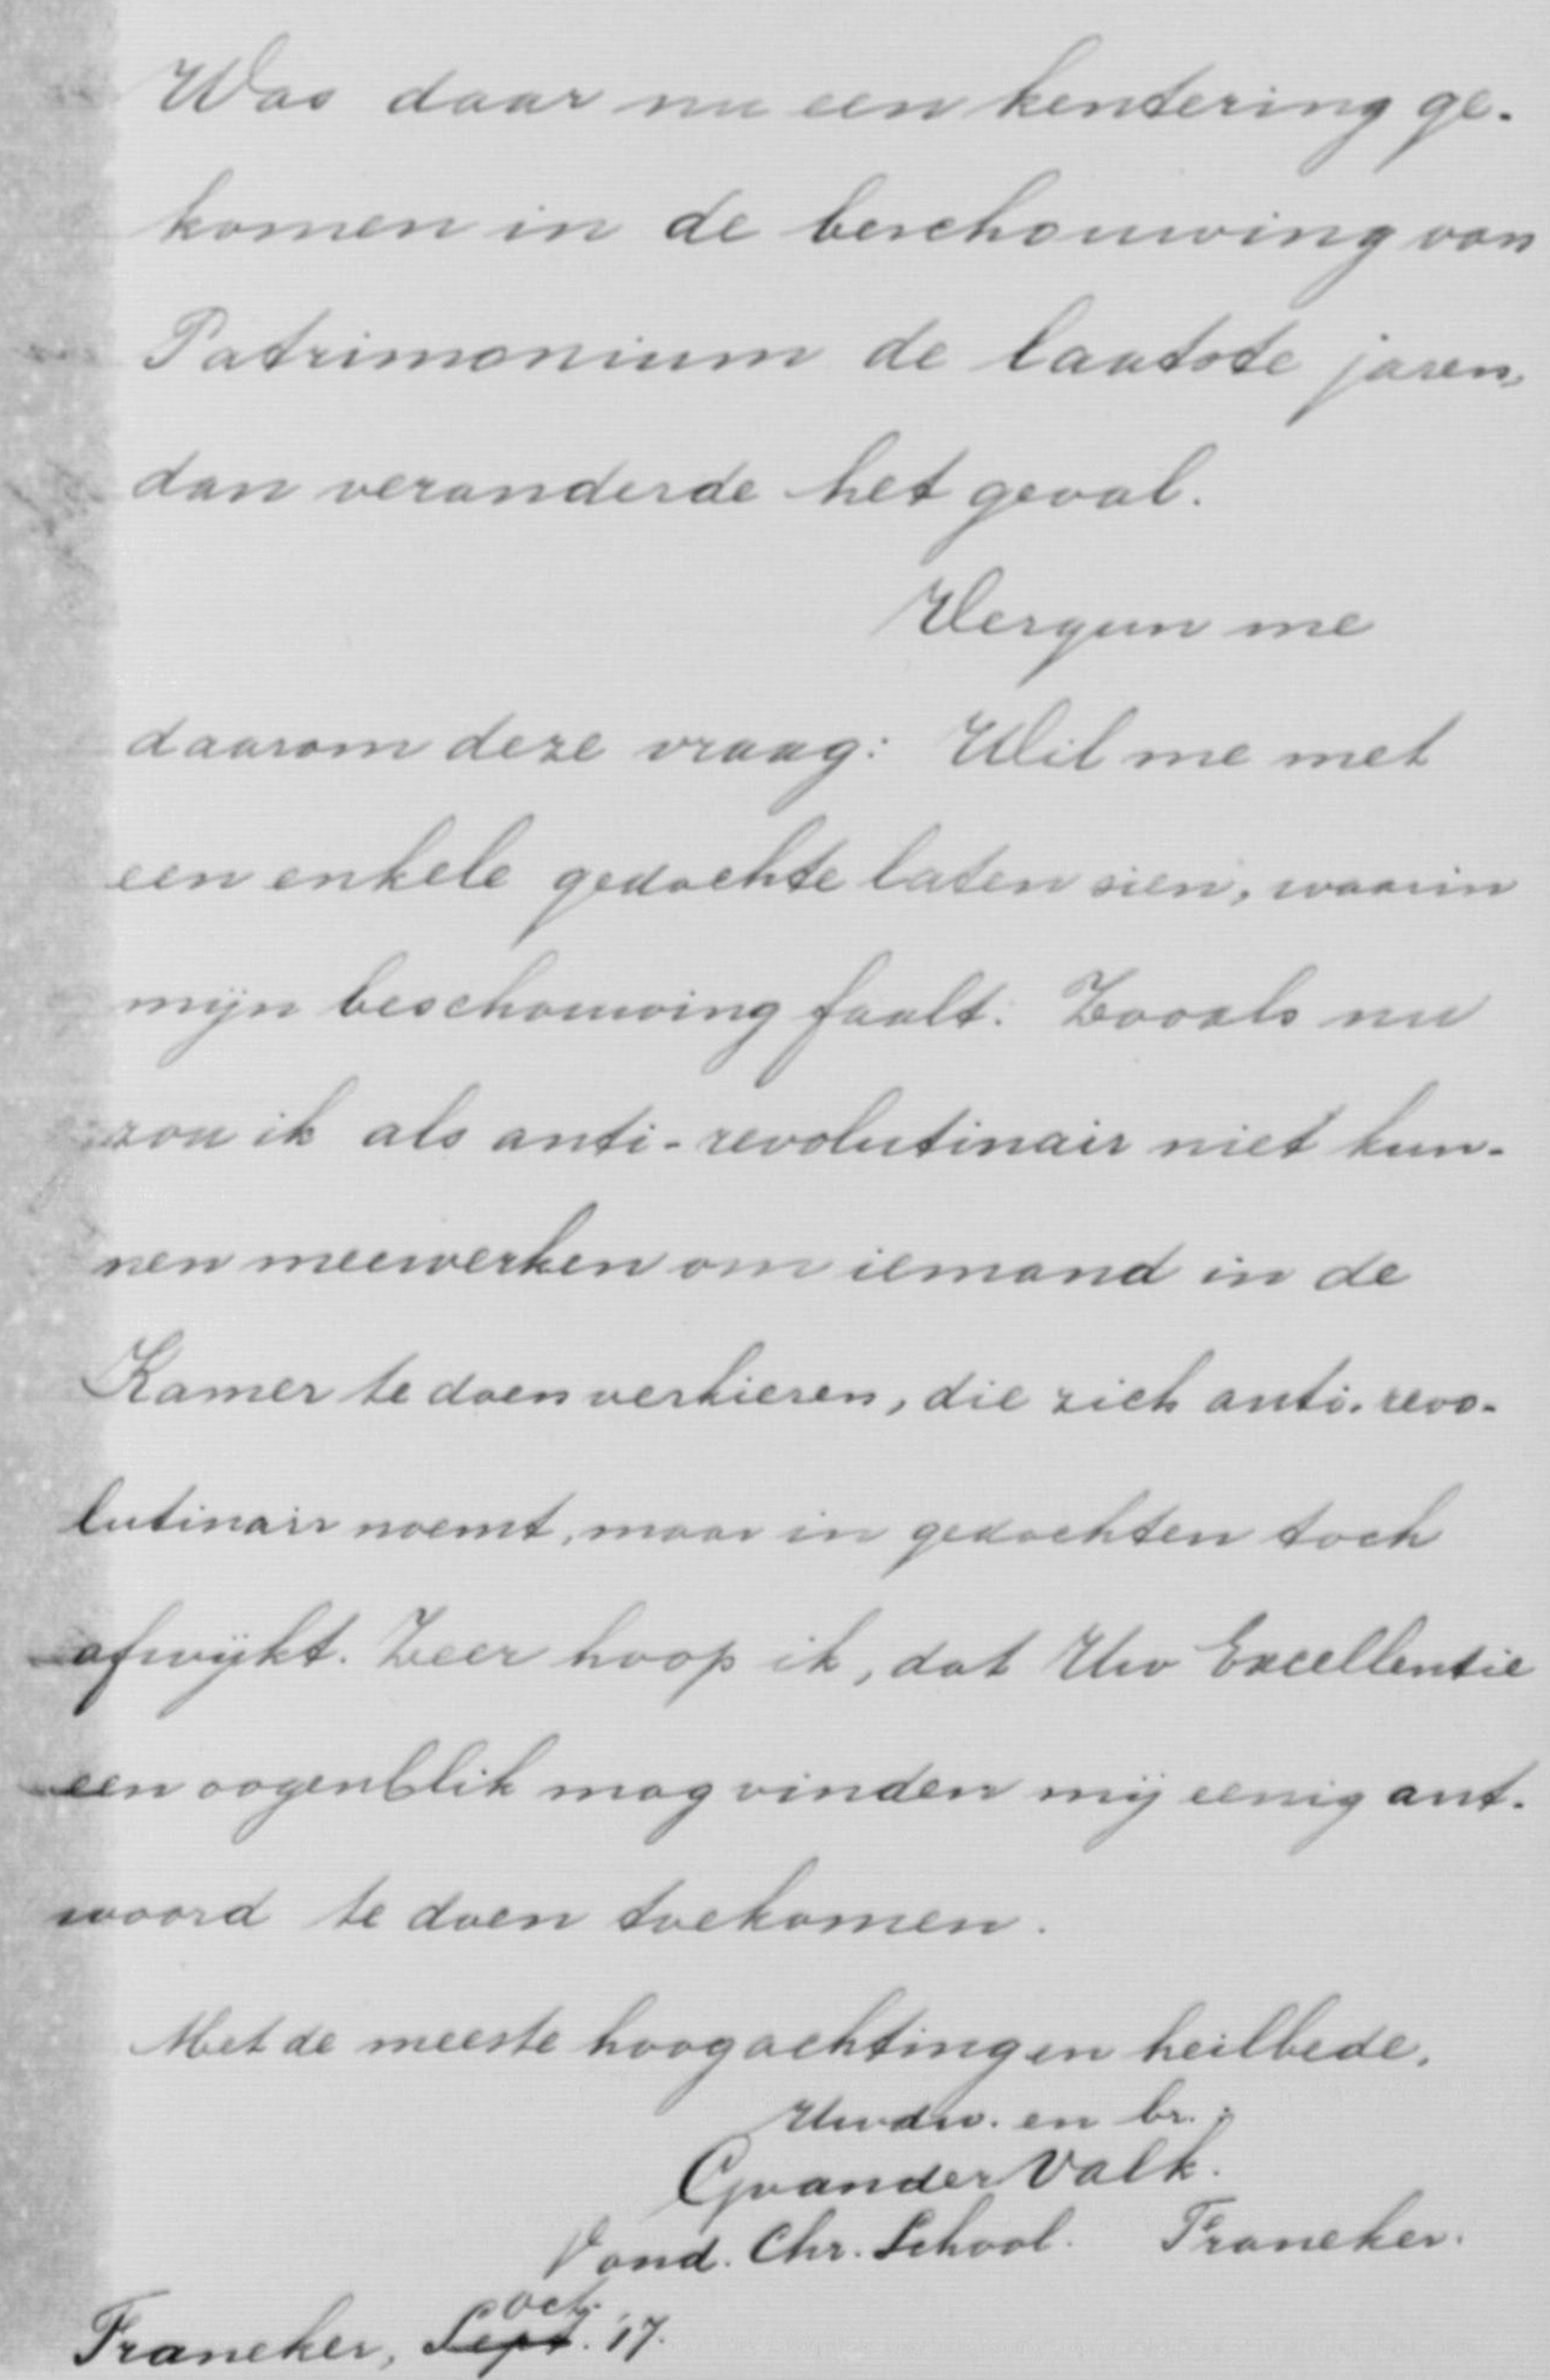 Was daar nu een kentering ge-
komen in de beschouwing van
Patrimonium de laatste jaren,
dan veranderde het geval.
Vergun me
daarom deze vraag: Wil me met
een enkele gedachte laten zien, waarin
mijn beschouwing faalt. Zooals nu
zou ik als anti-revolutinair niet kun-
nen meewerken om iemand in de
Kamer te doen verkiezen, die zich anti-revo-
lutinair noemt, maar in gedachten toch
afwijkt. Zeer hoop ik, dat Uw Excellentie
een oogenblik mag vinden mij eenig ant-
woord te doen toekomen.
Met de meeste hoogachting en heilbede,
Uwdw. en br.;
G van der Valk.
Chr. School. Franeker.
Franeker, Sept. Oct. '17.